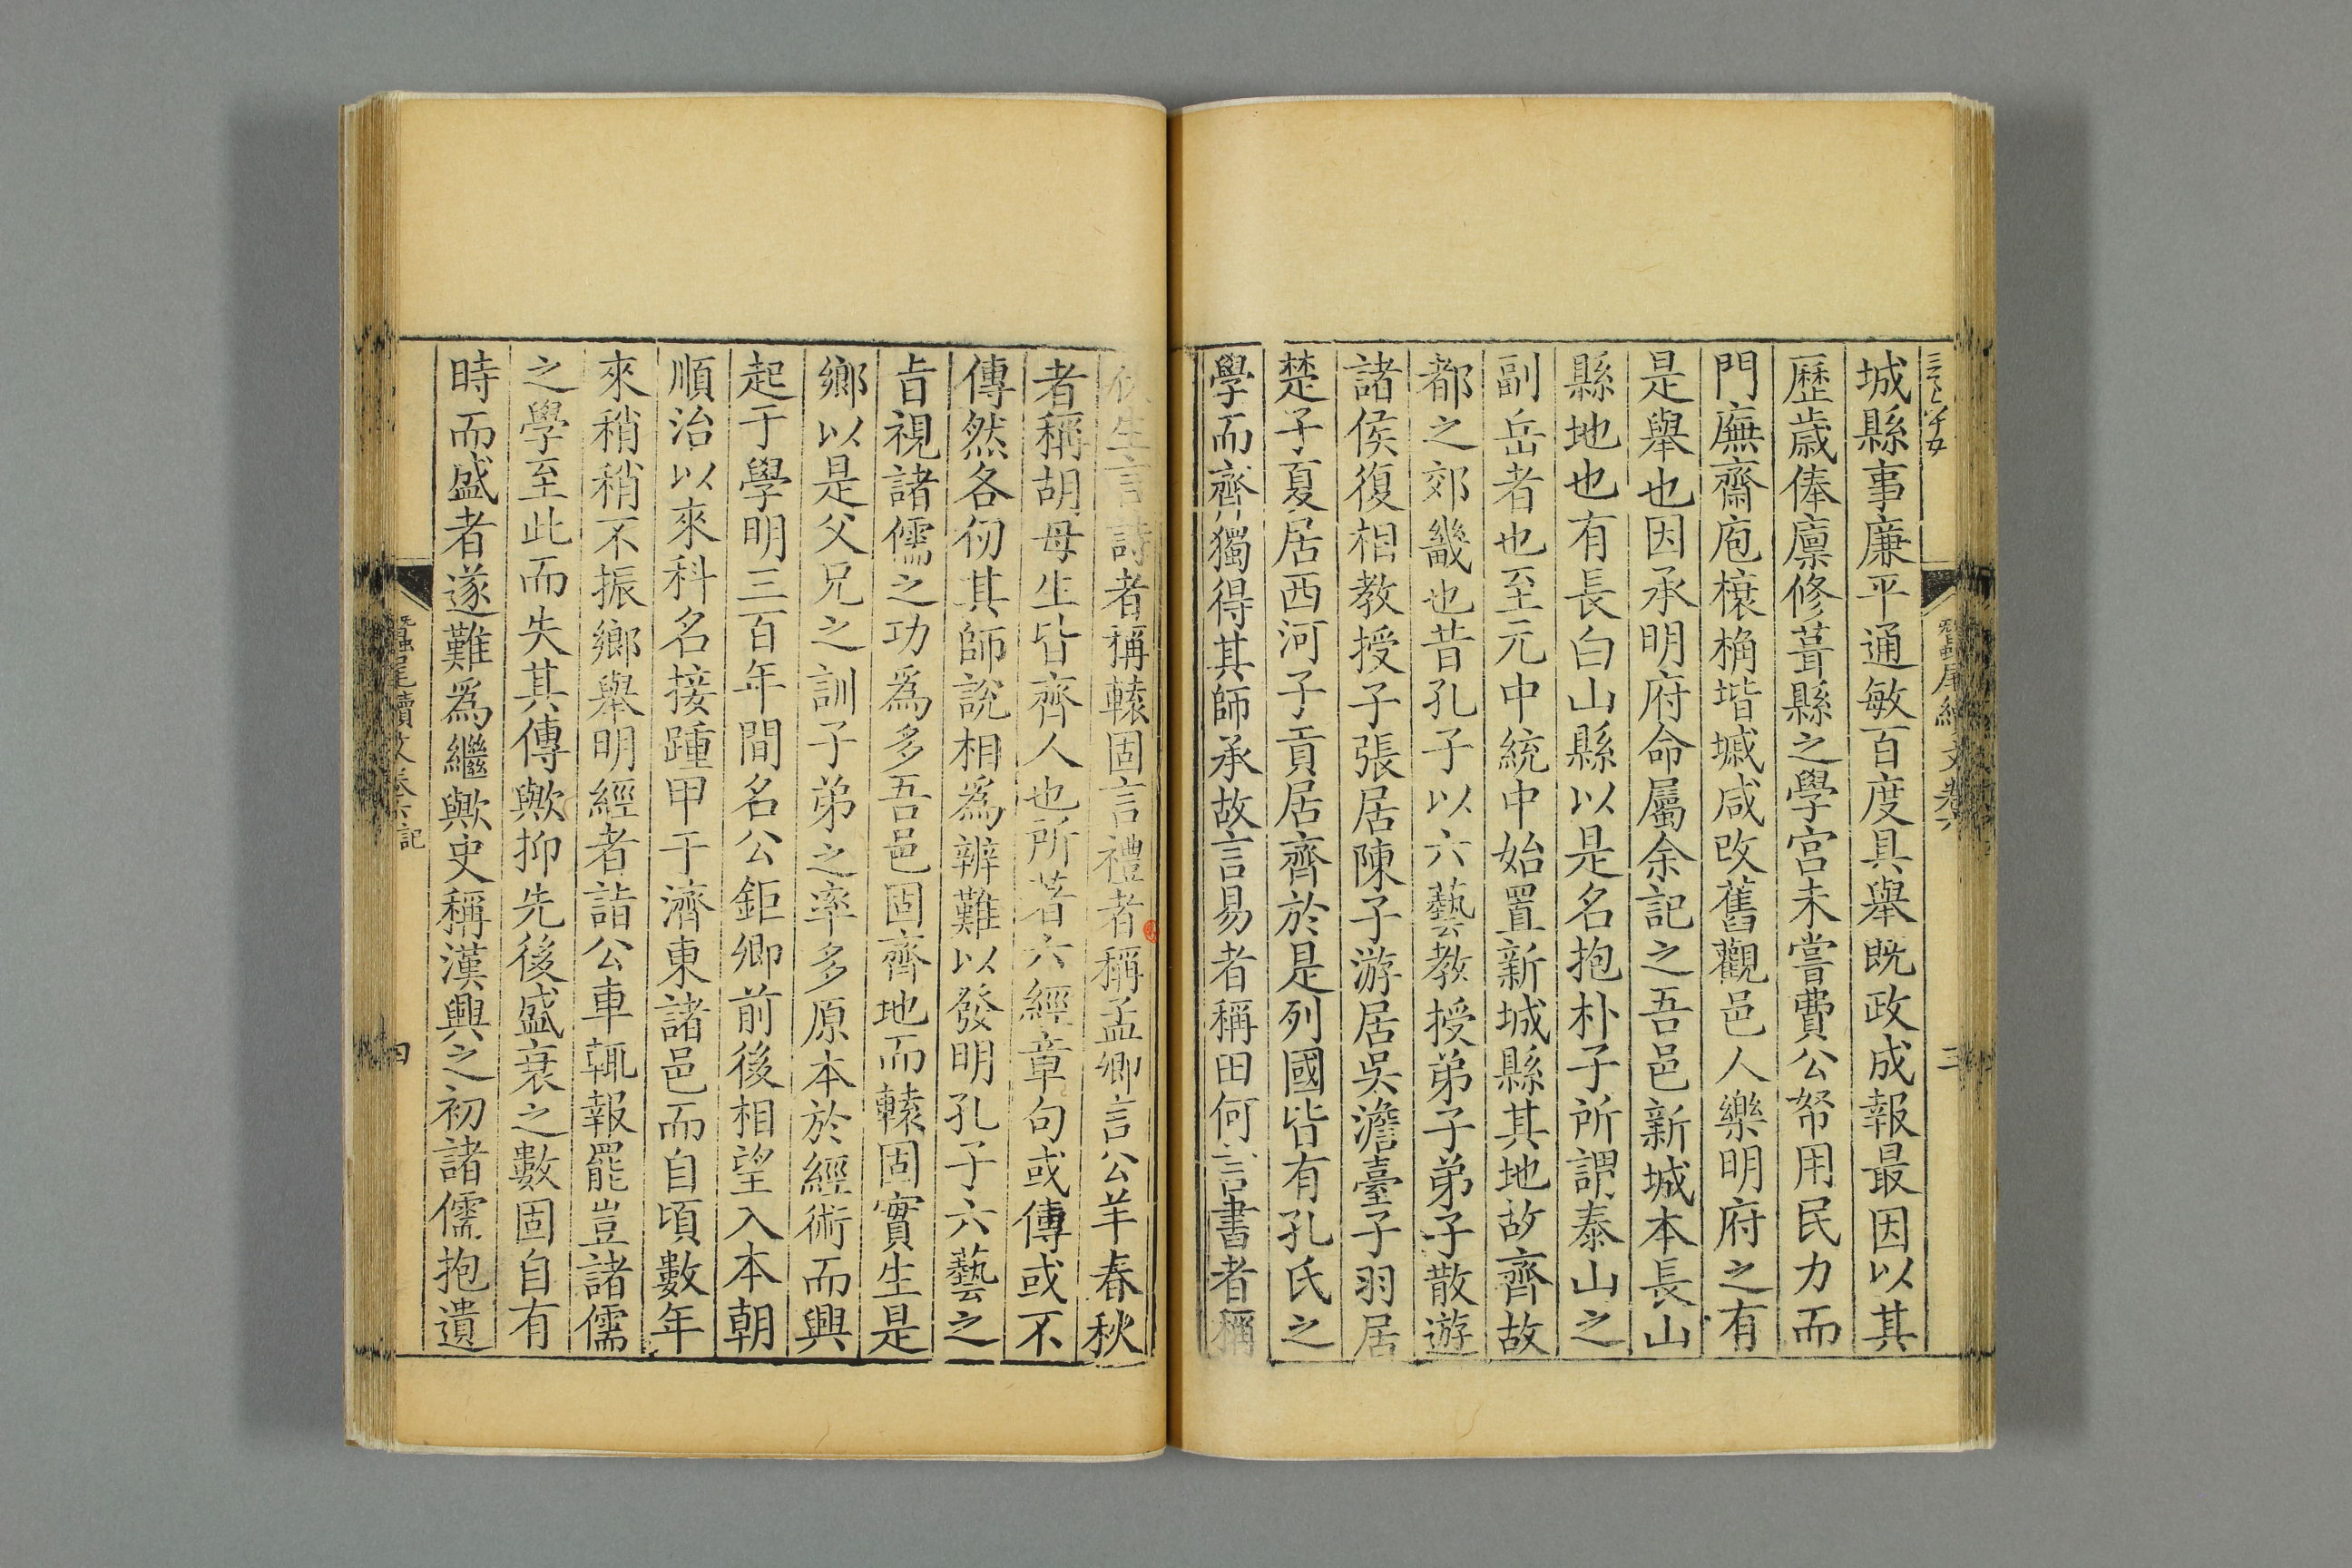 城縣事廉平通敏百度具舉既政成報最因以其
歷歲俸廪修葺縣之學宮未嘗費公帑用民力而
門廡齋庖榱桷堦墄咸改舊觀邑人樂明府之有
是舉也因承明府命屬余記之吾邑新城本長山
縣地也有長白山縣以是名抱朴子所謂泰山之
副岳者也至元中統中始置新城縣其地故齊故
都之郊畿也昔孔子以六藝教授弟子弟子散遊
諸侯復相教授子張居陳子游居吳澹臺子羽居
楚子夏居西河子貢居齊於是列國皆有孔氏之
學而齊獨得其師承故言易者稱田何言書者稱
伏生言詩者稱轅固言禮者稱孟卿言公羊春秋
者稱胡母生皆齊人也所著六經章句或傳或不
傳然各仞其師說相為辨難以發明孔子六藝之
旨視諸儒之功為多吾邑固齊地而轅固實生是
鄉以是父兄之訓子弟之率多原本於經術而興
起于學明三百年間名公鉅卿前後相望入本朝
順治以來科名接踵甲于濟東諸邑而自頃數年
來稍稍不振鄉舉明經者詣公車輒報罷豈諸儒
之學至此而失其傳歟抑先後盛衰之數固自有
時而盛者遂難為繼歟史稱漢興之初諸儒抱遺
蠶尾續文卷六 記
四